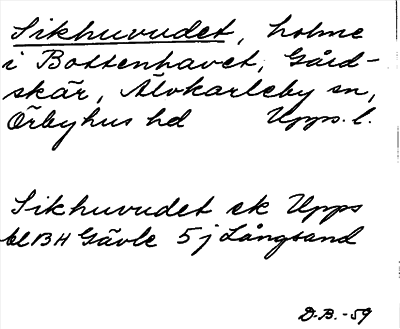 Sikhuvudet, holme
i Bottenhavet, Gård-
skär, Älvkarleby sn,
Örbyhus hd Upps. l.
Sikhuvudet ek Upps
bl BH Gävle 5 j Långsand
D.B.-59